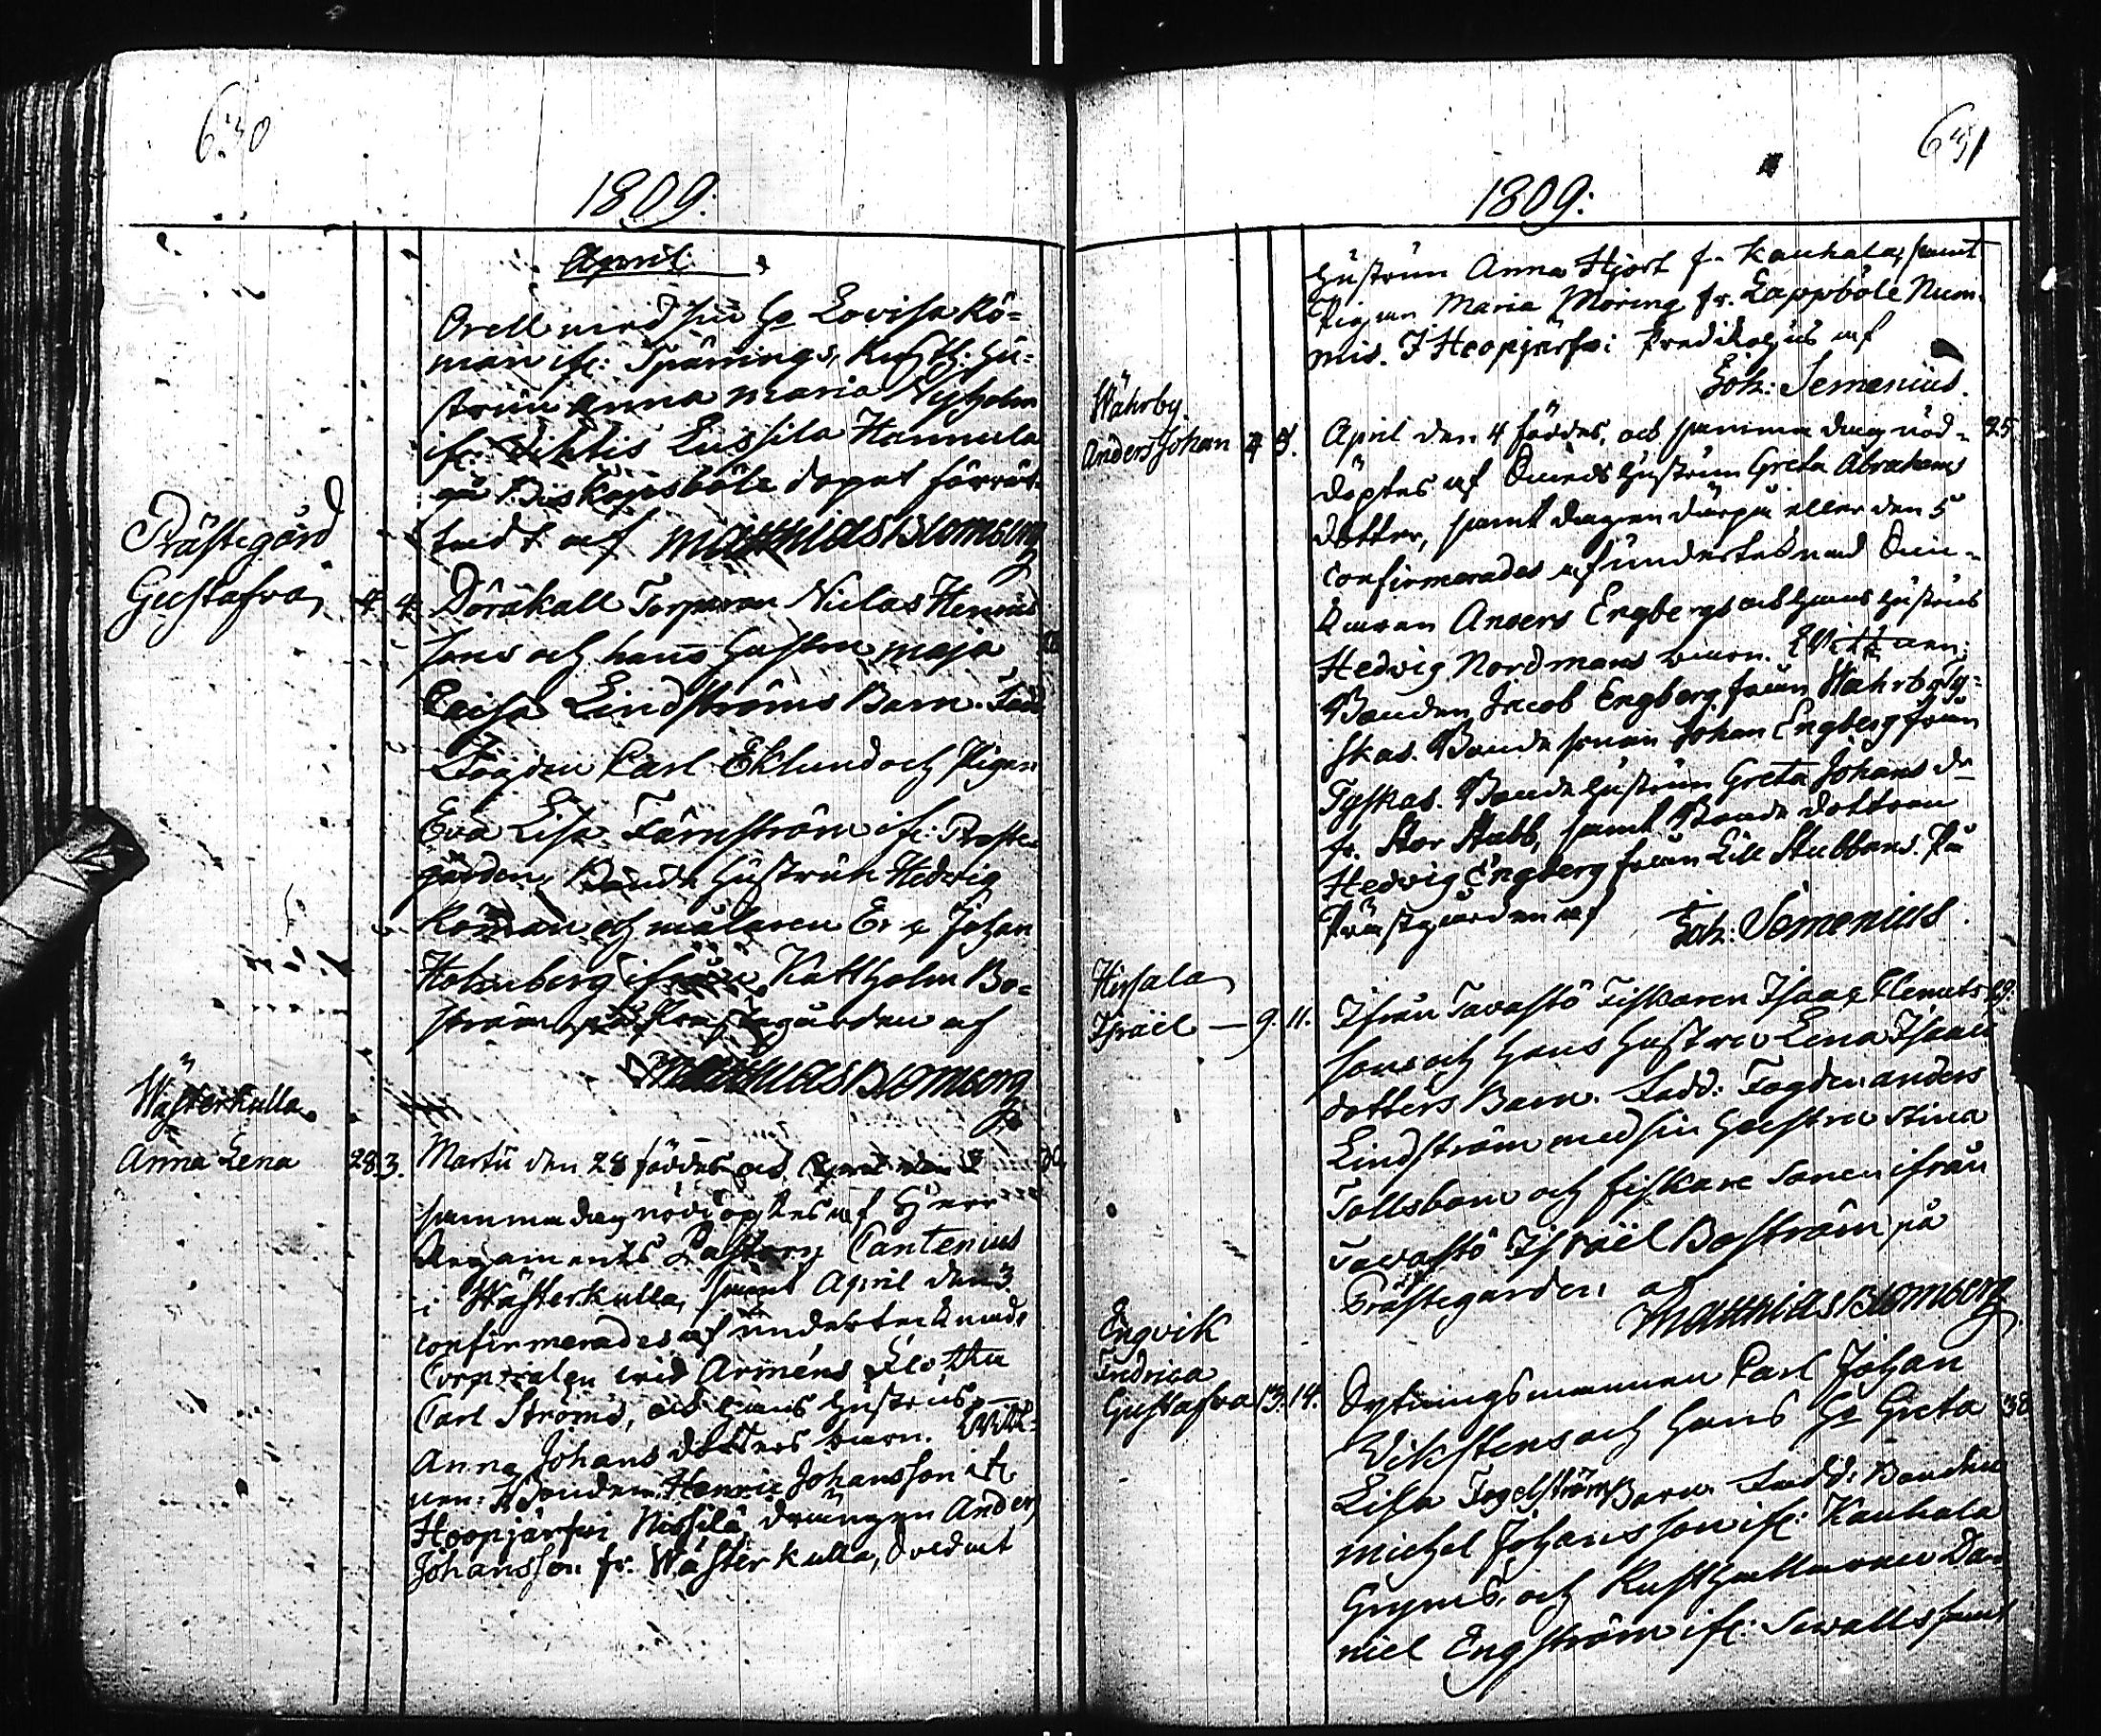 630
1809.
April.
Orell med sin H. Lovisa Rö=
man ifr: Sparrings, Rusth: Hu-
strun Anna Maria Nyholm
ifr: Sikila Hannula
på Biskopsböle dopet förrät-
tadt af Matthias Blomberg
Prästegård
Gustafva 4 4 Torparen Niclas
sons och hans Hustru Maja
Caisa Lindströms Barn. Fadd
Fogden Carl Eklund och Pigan
Eva Lisa Färnström ifr: Prosten
gården, Bonde Hustrun Hedvig
Roman och målaren Er. Johan
Holmberg ifrån Kattholm Bo=
ström på Prästegården af
Matthias Blomberg
Wästerkulla
Anna Lena 28 3. Martii den 28 föddes och
samma dag nöddöptes af Herr
Regaments Pastorn Cantenius
i Wästerkulla, samt April den 3
confirmerades af undertecknad
Corporalen vid Arméns Flotta
Carl Ströms, och hans Hustrus
Anna Johans dotters barn. Witt-
nen: Bonden Henric Johansson ifr
Hoopjärfvi Nissilä, drängen Anders
Johansson fr. Wästerkulla,
631
1809:
Hustrun Anna Hjort fr. Kauhala, samt
Pigan Maria Moring fr. Lappböle Num-
mis. I Hoopjärfvi af
Joh: Semenius.
Wåhrby.
Anders Johan 4 5. April den 4 föddes, och samma dag nöd- 25
döptes af Hustrun Greta Abrahams
dotter, samt dagen därpå eller den 5
confirmerades af undertecknad
Anders Engbergs och hans Hustrus
Hedvig Nordmans barn. Wittnen:
Bonden Jacob Engberg från Wahrby Ty-
skas. Bonde sonen Johan Engberg från
Tyskas. Bonde Hustrun Greta Johans dr
fr. Stor Stubb, samt Bonde dottren
Hedvig Engberg från Lill Stubbans. På
Prästgården af Joh: Semenius.
Hirsala
Israël — 9. 11. Ifrån Tavastö Fiskaren Isaac Clemets 29.
sons och Hans Hustru Lena Isaacs
dotters Barn. Fadd: Fogden Anders
Lindström med sin Hustru Stina
Tallsbom och fiskare sonen ifrån
Tavastö Israël Boström på
Prästegarden af
Matthias Blomberg
Engvik
Fredrica
Gustafva 13. 14. Carl Johan
Vikstens och Hans H. Greta 38
Lisa Tegelström Barn. Fadd: Bonden
Michel Johansson ifr: Kauhala
och Rusthållaren Da
niel Engström ifr: Sevalls samt